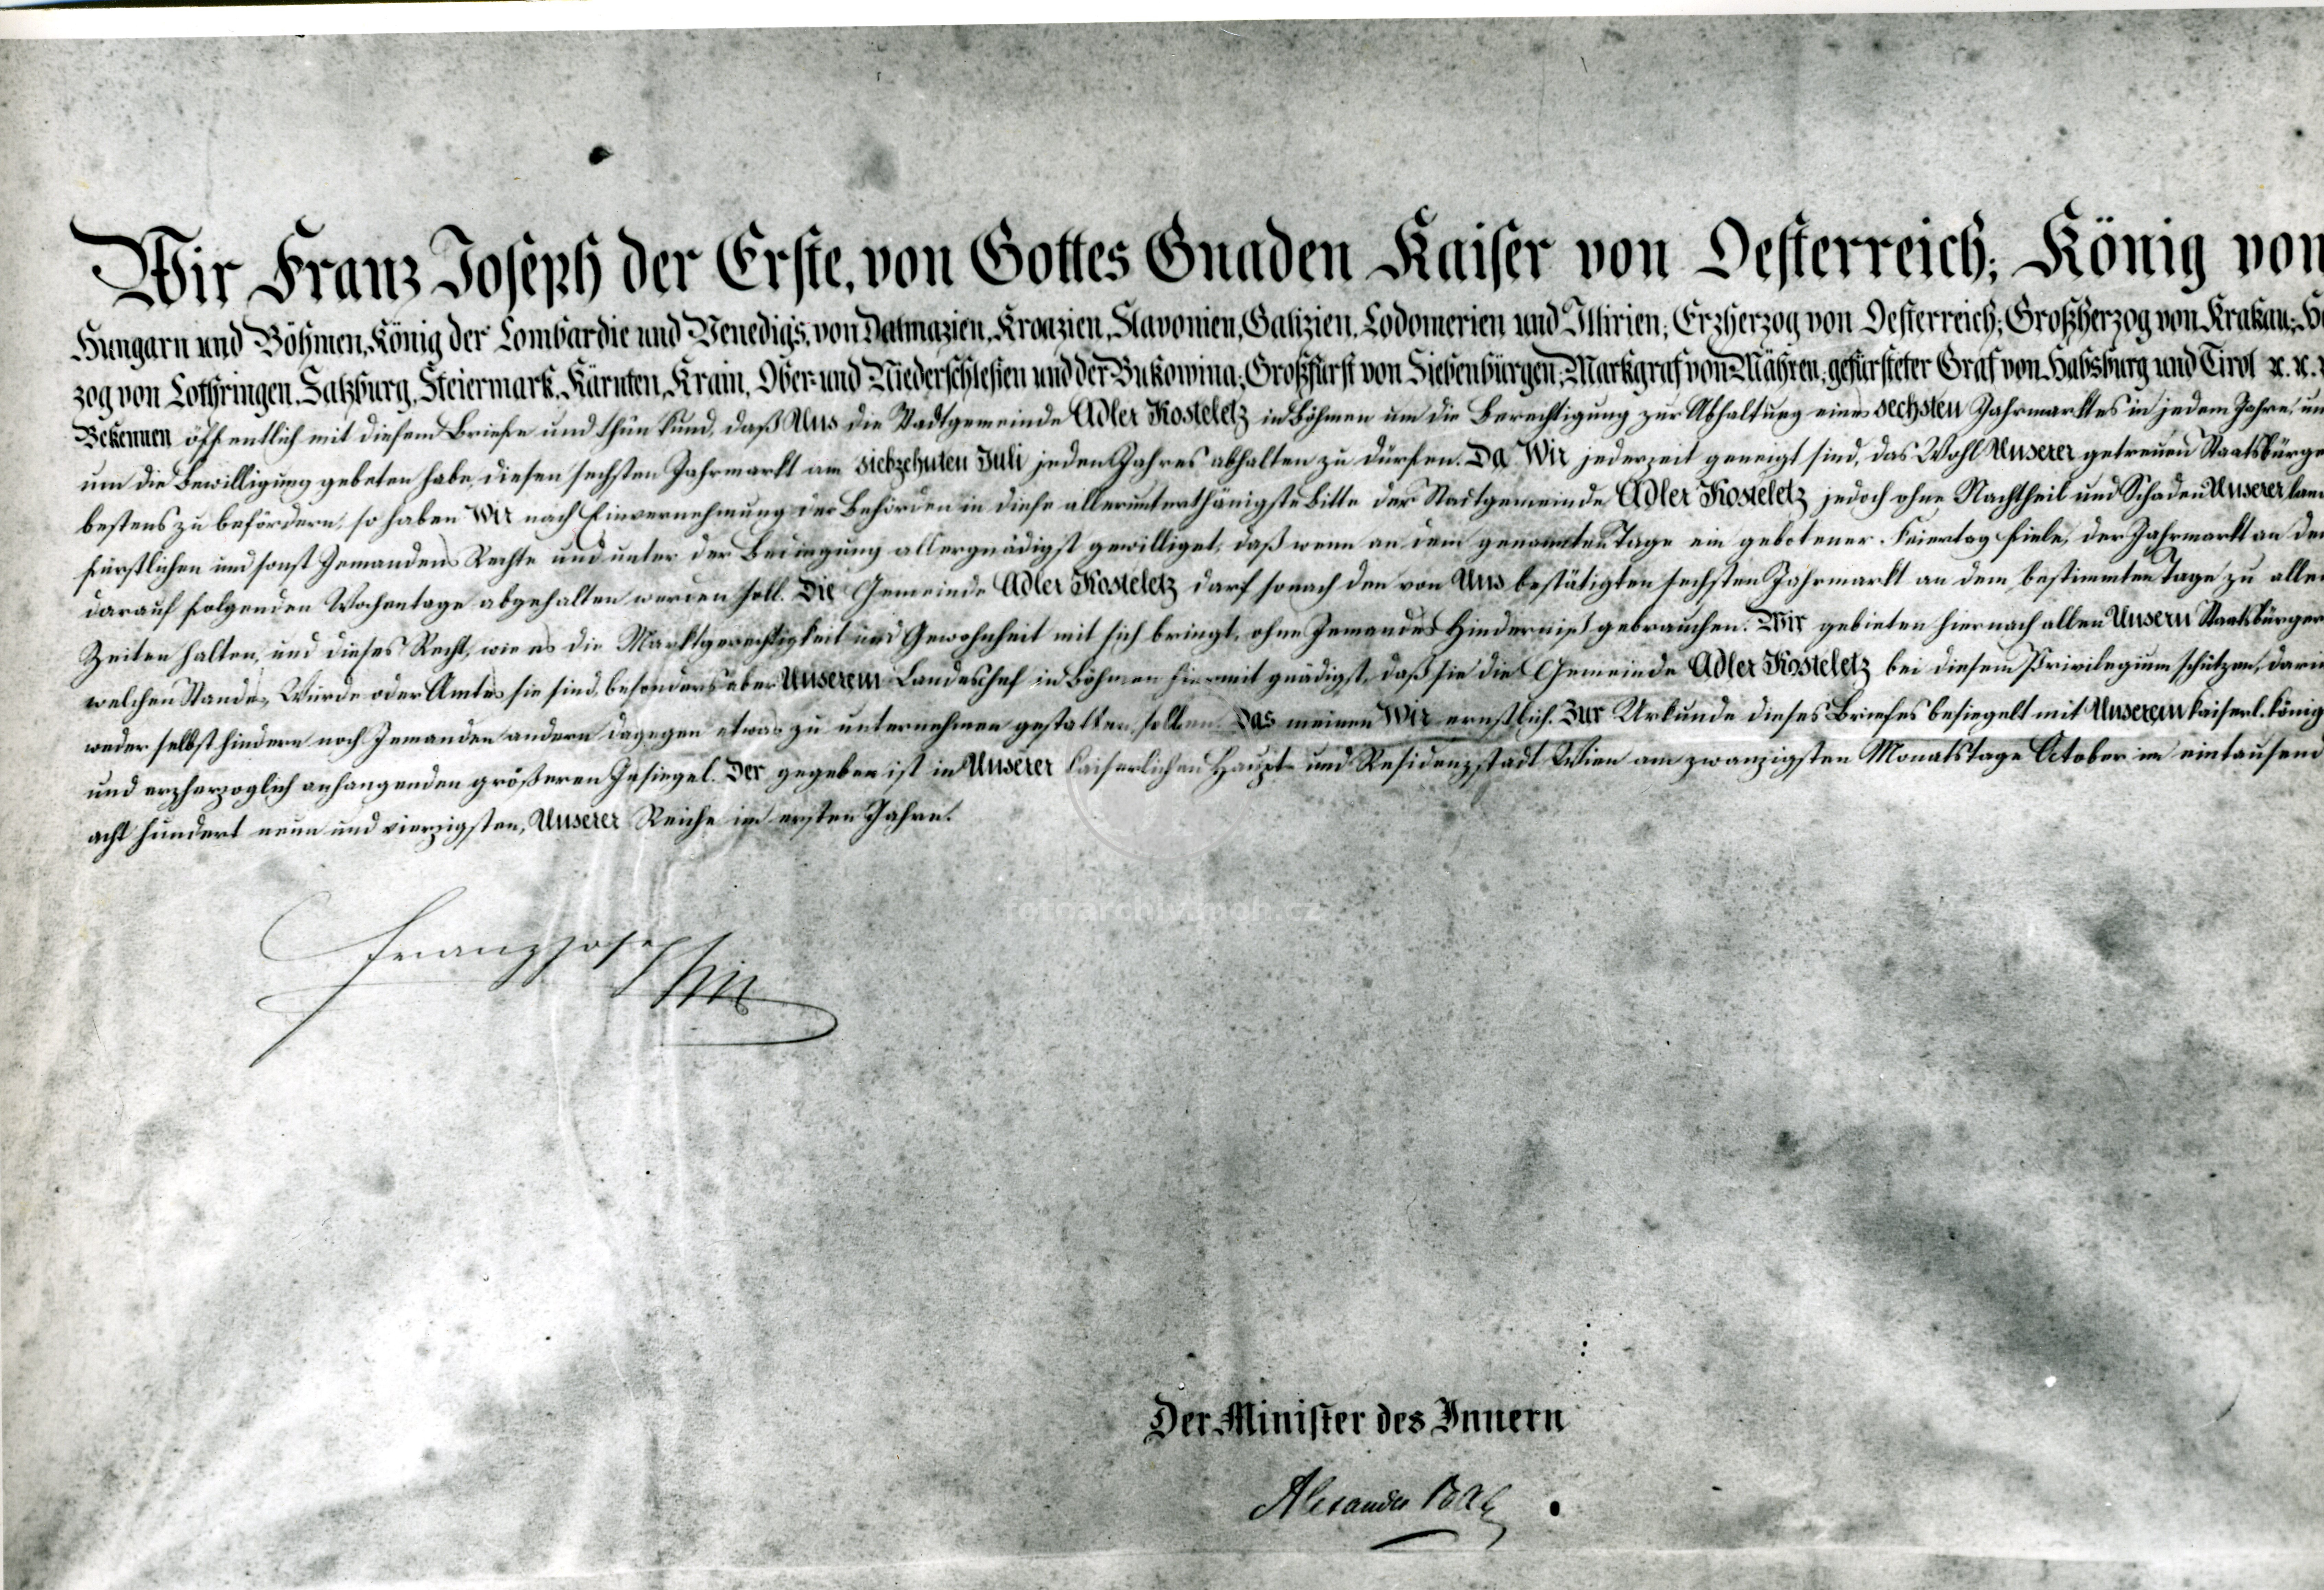 Wir Franz Joseph der Erste, von Gottes Gnaden Kaiser von Oesterreich; König von
Hungarn und Böhmen, König der Lombardie und Venedigs, von Dalmazien, Kroazien, Slavonien, Galizien, Lodomerien und Illirien; Erzherzog von Oesterreich; Großherzog von Krakau; He
zog von Lothringen, Salzburg, Steiermark, Kärnten, Krain, Ober- und Niederschlesien und der Bukowina; Großfürst von Siebenbürgen; Markgraf von Mähren; gefürsteter Graf von Habsburg und Tirol ꝛc. ꝛc.
Bekennen öffentlich mit diesem Briefe und thun kund, daß Uns die Stadtgemeinde Adler Kosteletz in Böhmen um die Berechtigung zur Abhaltung eines sechsten Jahrmarktes in jedem Jahre, un
um die Bewilligung gebeten habe, diesen sechsten Jahrmarkt am siebzehnten Juli jeden Jahres abhalten zu dürfen. Da Wir jederzeit geneigt sind, das Wohl Unserer getreuen Staatsbürge
bestens zu befördern, so haben Wir nach Einvernehmung der Behörden in diese allerunterthänigste Bitte der Stadtgemeinde Adler Kosteletz jedoch ohne Nachtheil und Schaden Unserer lan
fürstlichen und sonst Jemandens Rechte und unter der Bedingung allergnädigst gewilliget, daß wenn an dem genannten Tage ein gebotener Feiertag fiele, der Jahrmarkt an de
darauf folgenden Wochentage abgehalten werden soll. Die Gemeinde Adler Kosteletz darf sonach den von Uns bestätigten sechsten Jahrmarkt an dem bestimmten Tage zu alle
Zeiten halten, und dieses Recht, wie es die Marktgerechtigkeit und Gewohnheit mit sich bringt, ohne Jemandes Hinderniß gebrauchen. Wir gebieten hiernach allen Unsern Staatsbürger
welchen Standes, Würde oder Amtes sie sind, besonders aber Unserem Landeschef in Böhmen hiermit gnädigst, daß sie die Gemeinde Adler Kosteletz bei diesem Privilegium schützen, dari
weder selbst hindern noch Jemanden andern dagegen etwas zu unternehmen gestatten sollen. Das meinen Wir ernstlich. Zur Urkunde dieses Briefes besiegelt mit Unserem kaiserl. könig
und erzherzoglich anhangenden größeren Insiegel. Der gegeben ist in Unserer kaiserlichen Haupt- und Residenzstadt Wien am zwanzigsten Monatstage October im eintausend
acht hundert neun und vierzigsten, Unserer Reiche im ersten Jahre.
Franz Joseph
fotoarchiv.npoh.cz
Der Minister des Innern
Alexander Bach